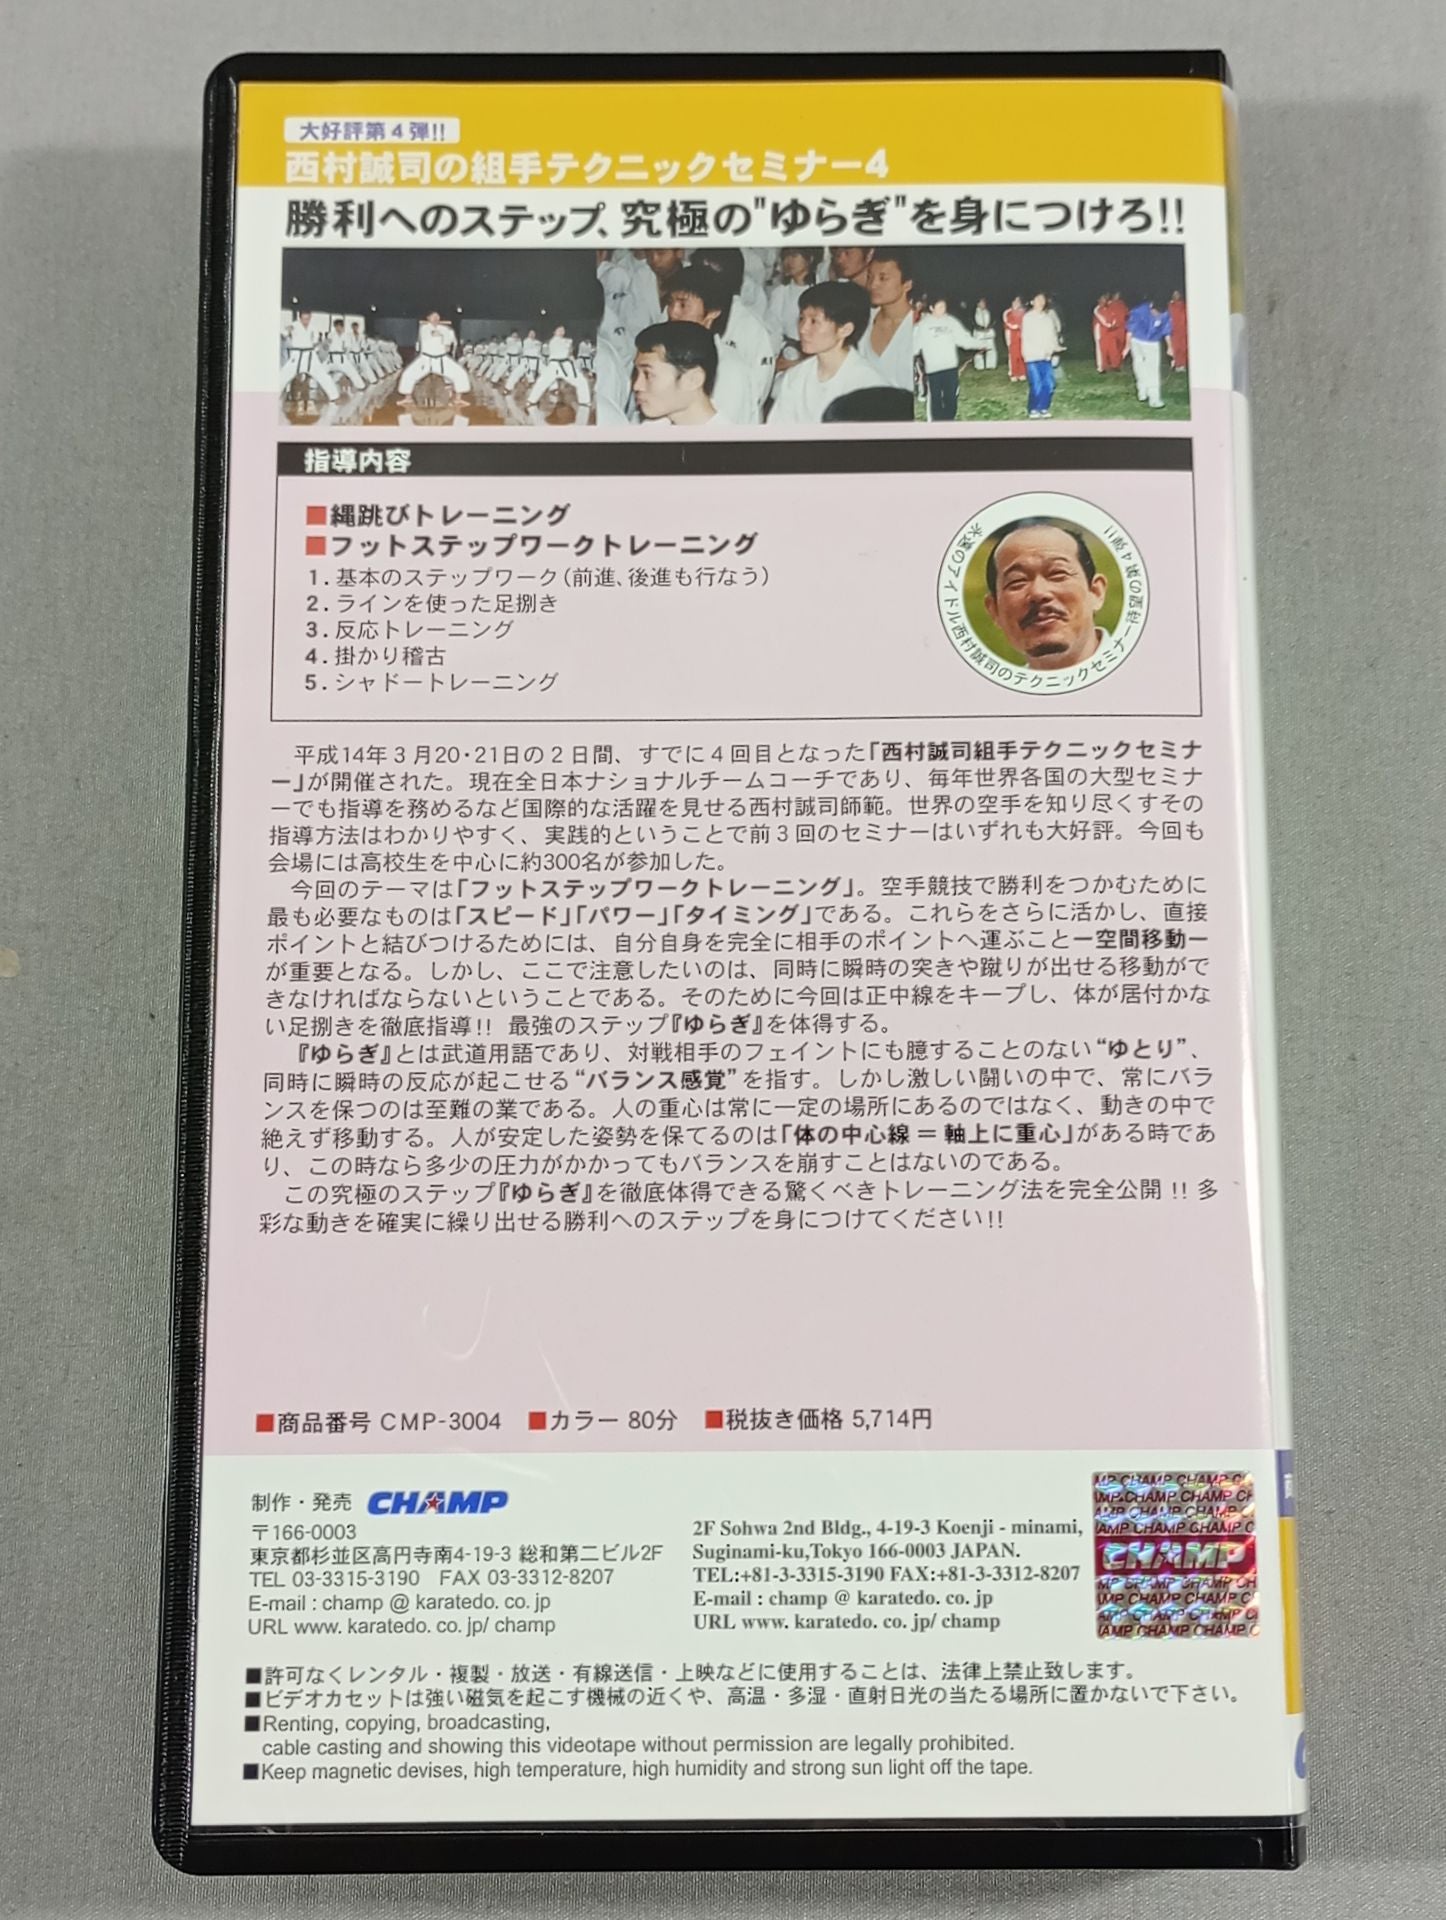 大好評第4弾!!
西村誠司の組手テクニックセミナー4
勝利へのステップ、究極の"ゆらぎ"を身につけろ!!
指導内容
■縄跳びトレーニング
■フットステップワークトレーニング
1.基本のステップワーク(前進、後進も行なう)
2.ラインを使った足捌き
3.反応トレーニング
4.掛かり稽古
5.シャドートレーニング
永遠のアイドル西村誠司のテクニックセミナー待望の第4弾!!
平成14年3月20・21日の2日間、すでに4回目となった「西村誠司組手テクニックセミナ
ー」が開催された。現在全日本ナショナルチームコーチであり、毎年世界各国の大型セミナ
ーでも指導を務めるなど国際的な活躍を見せる西村誠司師範。世界の空手を知り尽くすその
指導方法はわかりやすく、実践的ということで前3回のセミナーはいずれも大好評。今回も
会場には高校生を中心に約300名が参加した。
今回のテーマは「フットステップワークトレーニング」。空手競技で勝利をつかむために
最も必要なものは「スピード」「パワー」「タイミング」である。これらをさらに活かし、直接
ポイントと結びつけるためには、自分自身を完全に相手のポイントへ運ぶことー空間移動ー
が重要となる。しかし、ここで注意したいのは、同時に瞬時の突きや蹴りが出せる移動がで
きなければならないということである。そのために今回は正中線をキープし、体が居付かな
い足捌きを徹底指導!! 最強のステップ『ゆらぎ』を体得する。
『ゆらぎ』とは武道用語であり、対戦相手のフェイントにも臆することのない“ゆとり”、
同時に瞬時の反応が起こせる“バランス感覚”を指す。しかし激しい闘いの中で、常にバラ
ンスを保つのは至難の業である。人の重心は常に一定の場所にあるのではなく、動きの中で
絶えず移動する。人が安定した姿勢を保てるのは「体の中心線＝軸上に重心」がある時であ
り、この時なら多少の圧力がかかってもバランスを崩すことはないのである。
この究極のステップ『ゆらぎ』を徹底体得できる驚くべきトレーニング法を完全公開!!多
彩な動きを確実に繰り出せる勝利へのステップを身につけてください!!
■商品番号 CMP-3004 ■カラー 80分 ■税抜き価格 5,714円
制作・発売 CHAMP
〒166-0003
東京都杉並区高円寺南4-19-3 総和第二ビル2F
TEL 03-3315-3190 FAX 03-3312-8207
E-mail : champ @ karatedo. co. jp
URL www. karatedo. co. jp/ champ
2F Sohwa 2nd Bldg., 4-19-3 Koenji - minami,
Suginami-ku,Tokyo 166-0003 JAPAN.
TEL:+81-3-3315-3190 FAX:+81-3-3312-8207
E-mail : champ @ karatedo. co. jp
URL www. karatedo. co. jp/ champ
CHAMP
■許可なくレンタル・複製・放送・有線送信・上映などに使用することは、法律上禁止致します。
■ビデオカセットは強い磁気を起こす機械の近くや、高温・多湿・直射日光の当たる場所に置かないで下さい。
■Renting, copying, broadcasting,
cable casting and showing this videotape without permission are legally prohibited.
■Keep magnetic devises, high temperature, high humidity and strong sun light off the tape.